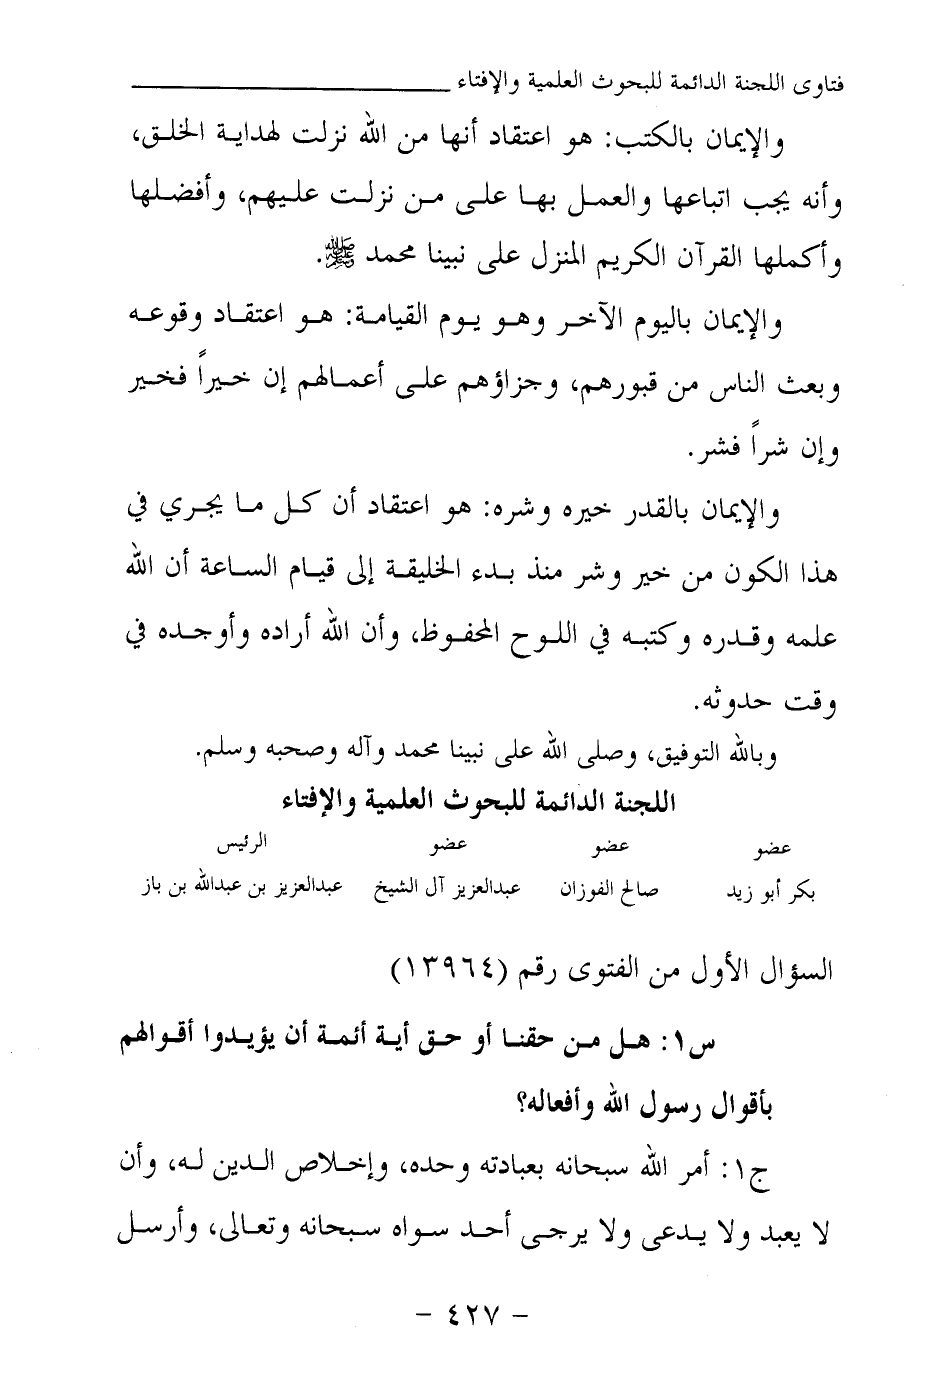 فتاوى اللجنة الدائمة للبحوث العلمية والإفتاء
والإيمان بالكتب: هو اعتقاد أنها من الله نزلت لهداية الخلق،
وأنه يجب اتباعها والعمل بها على من نزلت عليهم، وأفضلها
وأكملها القرآن الكريم المنزل على نبينا محمد ﷺ.
والإيمان باليوم الآخر وهو يوم القيامة: هو اعتقاد وقوعه
وبعث الناس من قبورهم، وجزاؤهم على أعمالهم إن خيراً فخير
وإن شراً فشر.
والإيمان بالقدر خيره وشره: هو اعتقاد أن كل ما يجري في
هذا الكون من خير وشر منذ بدء الخليقة إلى قيام الساعة أن الله
علمه وقدره وكتبه في اللوح المحفوظ، وأن الله أراده وأوجده في
وقت حدوثه.
وبالله التوفيق، وصلى الله على نبينا محمد وآله وصحبه وسلم.
اللجنة الدائمة للبحوث العلمية والإفتاء
عضو عضو عضو الرئيس
بكر أبو زيد صالح الفوزان عبدالعزيز آل الشيخ عبدالعزيز بن عبدالله بن باز
السؤال الأول من الفتوى رقم (١٣٩٦٤)
س١: هل من حقنا أو حق أية أئمة أن يؤيدوا أقوالهم
بأقوال رسول الله وأفعاله؟
ج١: أمر الله سبحانه بعبادته وحده، وإخلاص الدين له، وأن
لا يعبد ولا يدعى ولا يرجى أحد سواه سبحانه وتعالى، وأرسل
- ٤٢٧ -